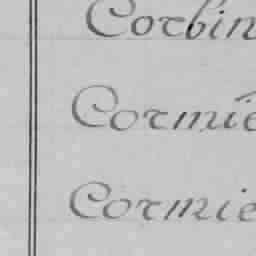 Corbin
Cormie
Cormie